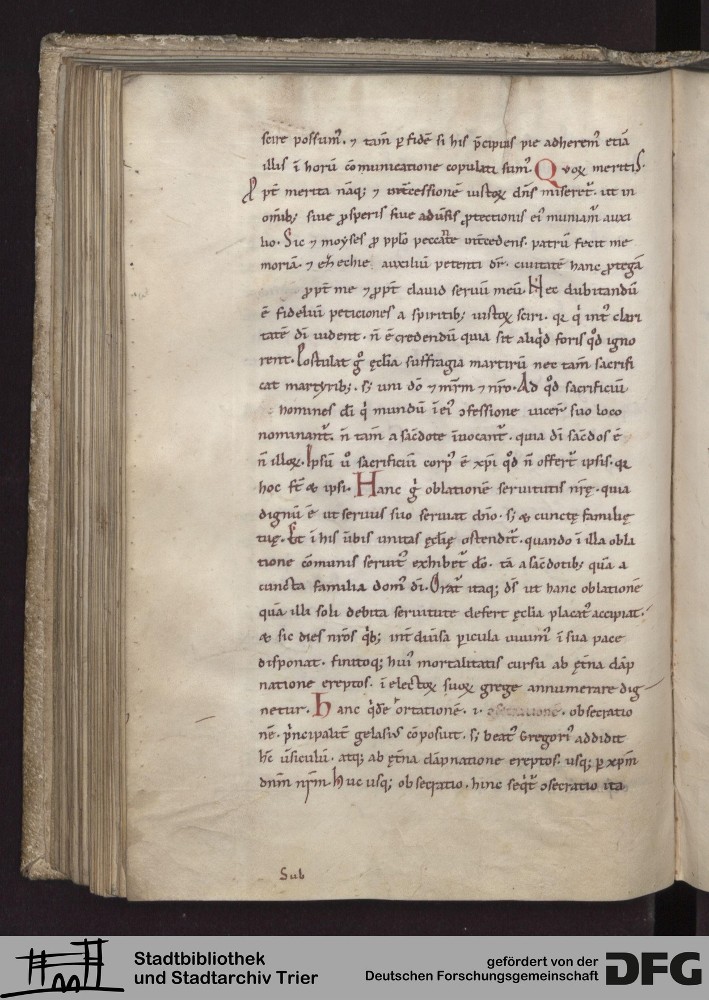 scire possum᷒. ⁊ tam̄ ꝑ fidē si his p̄cipuis pie adherem᷒ etiā
illis ī horū cōmunicatione copulati sum᷒. Quoꝝ meritis.
Ꝓpt̄ merita nāq; ⁊ int̄cessionē iustoꝝ dn̄s miseret᷒. ut in
om̄ib; siue ꝓsperis siue aduͥsis ꝓtectionis ei᷒ muniam᷒ auxi
lio. Sic ⁊ moẏses ꝓ pplō peccāte int̄cedens. patrū fecit me
moriā. ⁊ auxiliū petenti dr̄. ciuitatē hanc ꝓtegā
ꝓpt̄ me ⁊ ꝓpt̄ dauid seruū meū. Nec dubitandū
ē fideliū peticiones a spiritib; iustoꝝ sciri. qͥ int᷒ clari
tatē dī uident. n̄ ē credendū quia sit aliqͥd foris qͦd igno
rent. Postulat gͦ ęclīa suffragia martirū nec tam̄ sacrifi
cat martyrib; sȝ uni dō ⁊ nr̄o. Ad qͦd sacrificiū
homines dī qͥ mundū ī ei᷒ ↄfessione uicer̄ suo loco
nominant᷒. n̄ tam̄ a sac̄dote īuocant᷒. quia dī sac̄dos ē
n̄ illoꝝ. Ipsū u͛ sacrificiū corp᷒ ē xp̄i qͦd n̄ offert᷒ ipsis. qꝛ
hoc st̄ & ipsi. Hanc gͥ oblationē seruitutis nr̄ę. quia
dignū ē ut seruus suo seruiat dn̄o. sȝ & cunctę familię
tuę. Et ī his ūbis unitas ęclīę ostendit᷒. quando ī illa obla
tione cōmunis seruit᷒ exhibet᷒ dō. tā a sac̄dotib; quā a
cuncta familia dom᷒ dī. Orat᷒ itaq; dś ut hanc oblationē
quā illi soli debita seruitute defert ęclīa placat᷒ accipiat.
& sic dies nr̄os qͥb; int̄ diu͛sa ꝑicula uiuim᷒ ī sua pace
disponat. finitoq; hui᷒ mortalitatis cursu ab ęt̄na dāp
natione ereptos. ī electoꝝ suoꝝ grege annumerare dig
netur. Hanc qͥdē ortationē. i. obsecratio
nē. pͥncipalit̄ gelasi᷒ cōposuit. sȝ beat᷒ Gregori᷒ addidit
hc̄ u͛siculū. atq; ab ęt̄na dāpnatione ereptos. usq; ꝑ xp̄m
dn̄m nr̄m. Huc usq; obsecratio. hinc seqͥt᷒ ↄsecratio ita
Sub
Stadtbibliothek
und Stadtarchiv Trier
gefördert von der
Deutschen Forschungsgemeinschaft
DFG